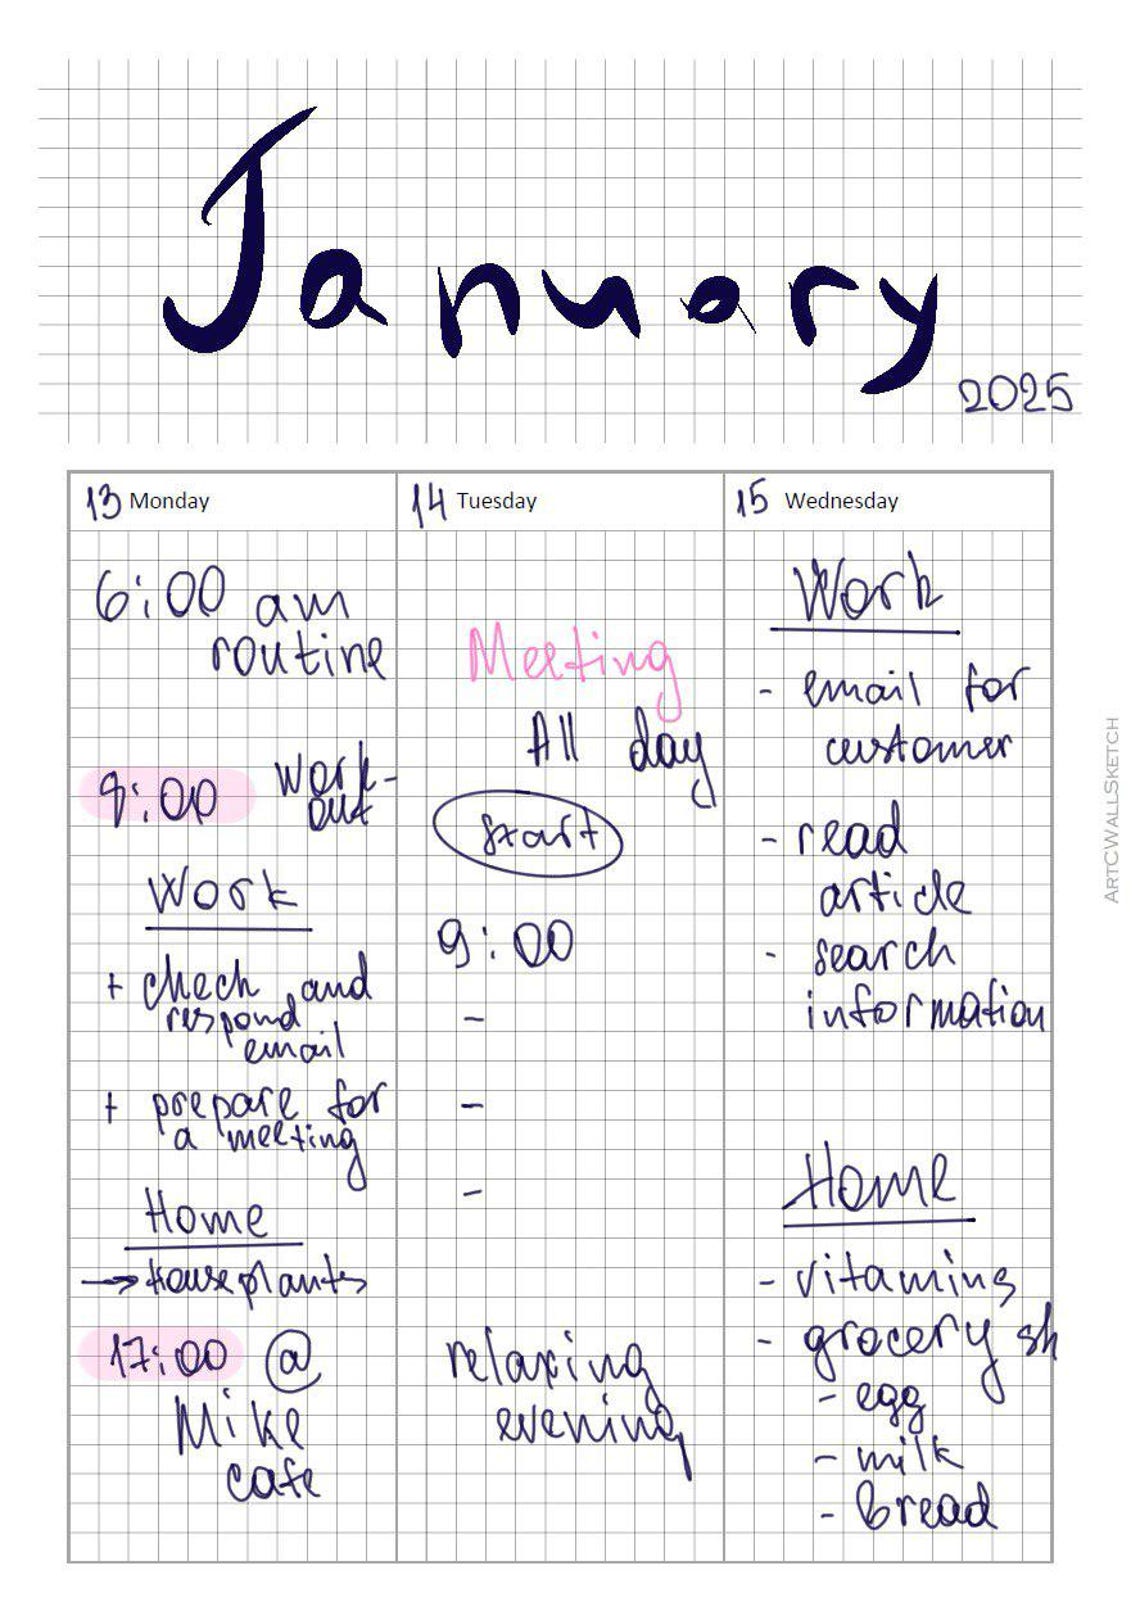 January
2025
13 Monday
6:00 am
routine
9:00 work-
out
Work
+ check and
respond
email
+ prepare for
a meeting
Home
→ houseplants
17:00 @
Mike
cafe
14 Tuesday
Meeting
All day
start
9:00
-
-
-
relaxing
evening
15 Wednesday
Work
- email for
customer
- read
article
- search
information
Home
- vitamins
- grocery sh
- egg
- milk
- bread
ArtCWallSketch